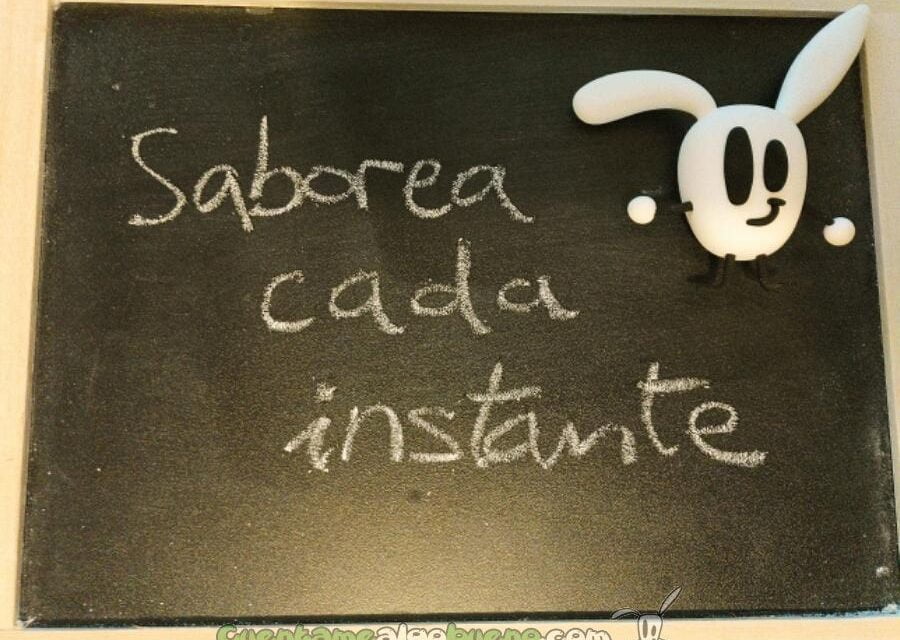 Saborea
cada
instante
cuentamealgobueno.com